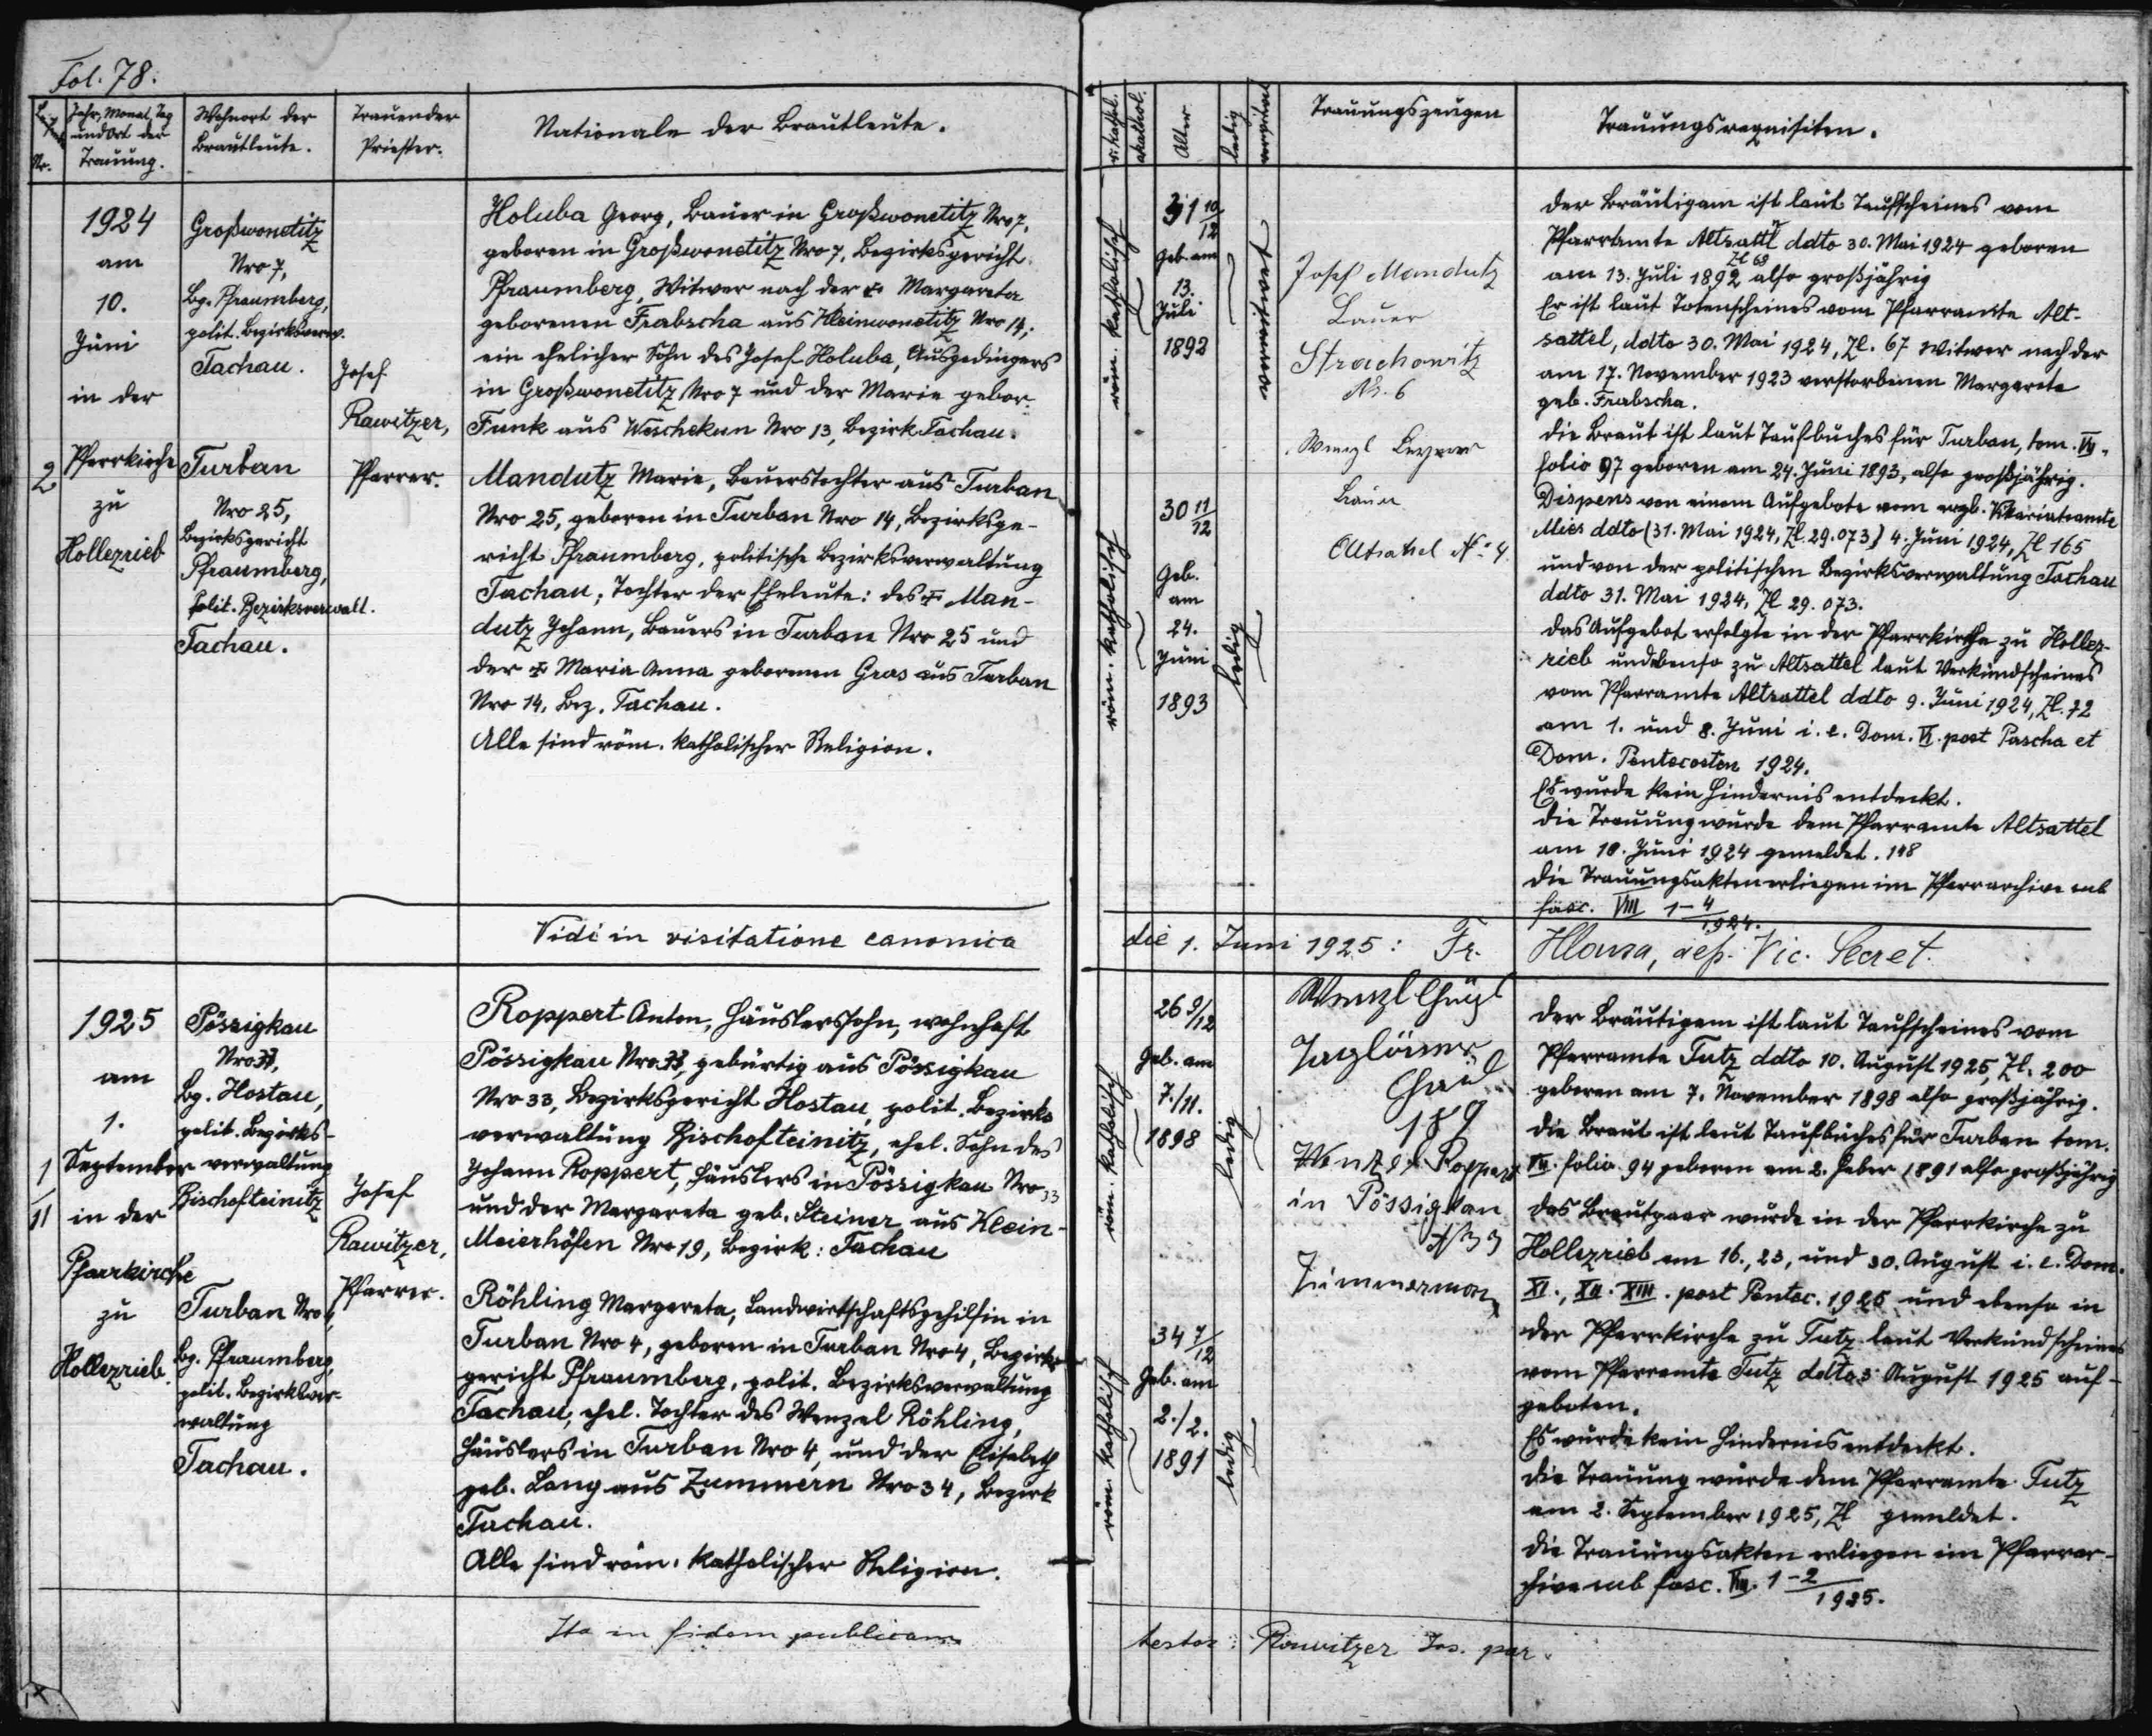 Fol. 78.
Nr.
Jahr, Monat, Tag
und Ort der
Trauung.
Wohnort der
Brautleute.
Trauender
Priester.
Nationale der Brautleute.
r. kathol.
akathol.
Alter
ledig
verwitwet
Trauungszeugen
Trauungsrequisiten.
2
1924
am
10.
Juni
in der
Pfarrkirche
zu
Hollezrieb
Großwonetitz
Nro 7,
Bg. Pfraumberg,
polit. Bezirksverw.
Tachau.
Turban
Nro 25,
Bezirksgericht
Pfraumberg,
polit. Bezirksverwalt.
Tachau.
Josef
Rawitzer,
Pfarrer.
Holuba Georg, Bauer in Großwonetitz Nro 7,
geboren in Großwonetitz Nro 7, Bezirksgericht
Pfraumberg, Witwer nach der † Margareta
geborenen Frabscha aus Kleinwonetitz Nro 14,
ein ehelicher Sohn des Josef Holuba, Ausgedingers
in Großwonetitz Nro 7 und der Marie gebor.
Funk aus Weschekun Nro 13, Bezirk Tachau.
Mandutz Marie, Bauerstochter aus Turban
Nro 25, geboren in Turban Nro 14, Bezirksge-
richt Pfraumberg, politische Bezirksverwaltung
Tachau, Tochter der Eheleute: des † Man-
dutz Johann, Bauers in Turban Nro 25 und
der † Maria Anna geborenen Gras aus Turban
Nro 14, Bez. Tachau.
Alle sind röm. katholischer Religion.
röm. katholisch
31 10/12
Geb. am
13.
Juli
1892
verwitwet
röm. katholisch
30 11/12
Geb.
am
24.
Juni
1893
ledig
Josef Mandutz
Bauer
Strachowitz
Nr. 6
Wenzl
Bauer
Altsattel Nr. 4
Der Bräutigam ist laut Taufscheines vom
Pfarramte Altsattl ddto 30. Mai 1924 geboren
Zl 68
am 13. Juli 1892 also großjährig
Er ist laut Totenscheines vom Pfarramte Alt-
sattel, ddto 30. Mai 1924, Zl. 67 Witwer nach der
am 17. November 1923 verstorbenen Margarete
geb. Frabscha.
Die Braut ist laut Taufbuches für Turban, tom. VII,
folio 97 geboren am 24. Juni 1893, also großjährig.
Dispens von einem Aufgebote vom Vikariatsamte
Mies ddto (31. Mai 1924, Zl. 29.073) 4. Juni 1924, Zl 165
und von der politischen Bezirksverwaltung Tachau
ddto 31. Mai 1924, Zl 29.073.
Das Aufgebot erfolgte in der Pfarrkirche zu Hollez-
rieb und ebenso zu Altsattel laut Verkündscheines
vom Pfarramte Altsattel ddto 9. Juni 1924, Zl. 72
am 1. und 8. Juni i. e. Dom. VI. post Pascha et
Dom. Pentecosten 1924.
Es wurde kein Hindernis entdeckt.
Die Trauung wurde dem Pfarramte Altsattel
am 10. Juni 1924 gemeldet. 148
Die Trauungsakten erliegen im Pfarrarchive sub
fasc. VIII 1-4/1924.
Vidi in visitatione canonica die 1. Juni 1925: Fr. Hlousa, dep. Vic. Secret.
1
II
1925
am
1.
September
in der
Pfarrkirche
zu
Hollezrieb.
Pössigkau
Nro 33,
Bg. Hostau,
polit. Bezirks-
verwaltung
Bischofteinitz
Turban Nro 4,
Bg. Pfraumberg,
polit. Bezirksver-
waltung
Tachau.
Josef
Rawitzer,
Pfarrer.
Roppert Anton, Häuslerssohn, wohnhaft
Pössigkau Nro 33, gebürtig aus Pössigkau
Nro 33, Bezirksgericht Hostau, polit. Bezirks
verwaltung Bischofteinitz, ehel. Sohn des
Johann Roppert, Häuslers in Pössigkau Nro 33
und der Margareta geb. Steiner aus Klein-
Meierhöfen Nro 19, Bezirk: Tachau
Röhling Margareta, Landwirtschaftsgehilfin in
Turban Nro 4, geboren in Turban Nro 4, Bezirks
gericht Pfraumberg, polit. Bezirksverwaltung
Tachau, ehel. Tochter des Wenzel Röhling,
Häuslers in Turban Nro 4, und der Elisabeth
geb. Lang aus Zummern Nro 34, Bezirk
Tachau.
Alle sind röm. katholischer Religion.
röm. katholisch
26 9/12
Geb. am
7./11.
1898
ledig
röm. katholisch
34 7/12
Geb. am
2./2.
1891
ledig
Wenzl
Taglöhner
189
Wenzel Roppert
in Pössigkau
N 33
Zimmermann
Der Bräutigam ist laut Taufscheines vom
Pfarramte Tutz ddto 10. August 1925, Zl. 200
geboren am 7. November 1898 also großjährig.
Die Braut ist laut Taufbuches für Turban tom.
VII. folio 94 geboren am 2. Feber 1891 also großjährig
Das Brautpaar wurde in der Pfarrkirche zu
Hollezrieb am 16., 23, und 30. August i. e. Dom.
XI., XII. XIII. post Pentec. 1925 und ebenso in
der Pfarrkirche zu Tutz laut Verkündscheines
vom Pfarramte Tutz ddto August 1925 auf-
geboten.
Es wurde kein Hindernis entdeckt.
Die Trauung wurde dem Pfarramte Tutz
am 2. September 1925, Zl gemeldet.
Die Trauungsakten erliegen im Pfarrar-
chive sub fasc. VIII. 1-2/1925.
Ita in fidem publicam testor: Rawitzer Jos. par.